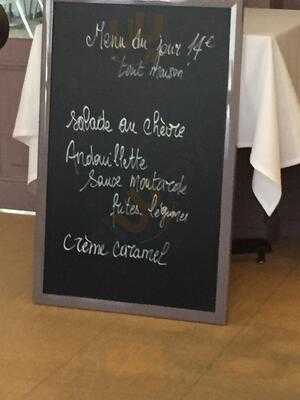 Menu du jour 14€
"tout maison"
Salade au chèvre
Andouillette
Sauce Moutarde
frites, légumes
Crème caramel